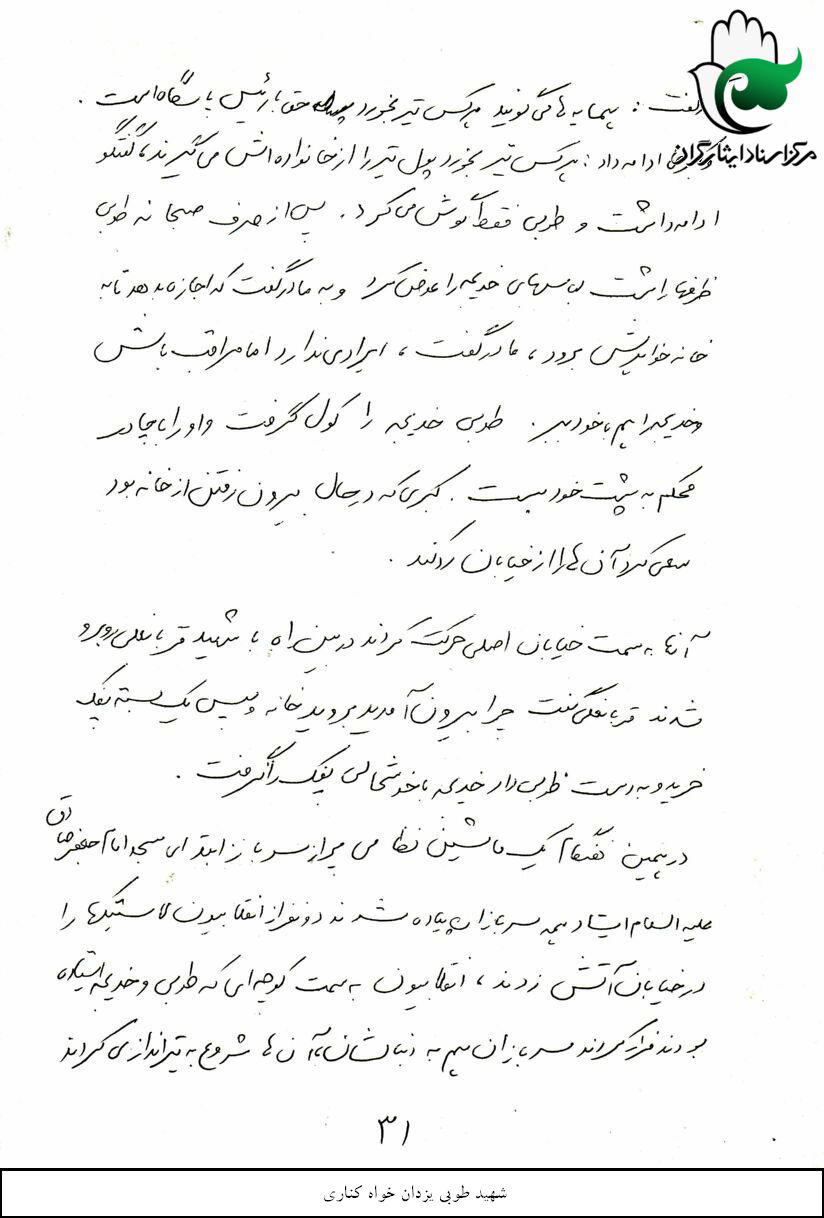 گفت : همسایه ها می گویند هرکس تیر بخورد حق با رئیس پاسگاه است .
مرکز اسناد ایثارگران
ادامه داد : هرکس تیر بخورد پول تیر را از خانواده اش می گیرند ، گفتگو
ادامه داشت و طوبی فقط گوش می کرد . پس از صرف صبحانه طوبی
ظرفها را شست لباسهای خدیجه را عوض کرد و به مادر گفت که اجازه بدهد تا به
خانه خواهرش برود ، مادر گفت ، ایرادی ندارد اما مراقب باش
و خدیجه را هم با خود ببر . طوبی خدیجه را کول گرفت و او را با چادر
محکم به پشت خود بست . کبری که در حال بیرون رفتن از خانه بود
سعی کرد آن ها را از خیابان رد کند .
آنها به سمت خیابان اصلی حرکت کردند در بین راه با شهید قربانعلی روبرو
شدند قربانعلی گفت چرا بیرون آمدید بروید خانه و سپس یک بسته پفک
خرید و به دست طوبی داد خدیجه با خوشحالی پفک را گرفت .
در همین هنگام یک ماشین نظامی پر از سرباز ابتدای مسجد امام جعفر صادق
علیه السلام ایستاد همه سربازان پیاده شدند دو نفر از انقلابیون لاستیکها را
در خیابان آتش زدند ، انقلابیون به سمت کوچه ای که طوبی و خدیجه ایستاده
بودند فرار کردند سربازان هم به دنبالشان با آن ها شروع به تیراندازی کردند
۳۱
شهید طوبی یزدان خواه کناری